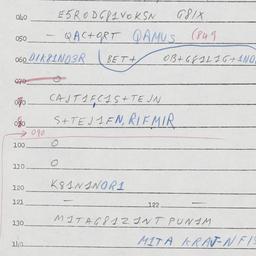 040 E5RODG81VOKSN G81X
050 - QAC+QRT QAMUS (849
060 D1K81NO3R 8ET+ OB+G81L1G+1NO
070 O
CAJT1FC1S+TEJN
S+TEJ1FN, RIFMIR
090
100 O
110 O
120 K81N1NOR1
121 - 122 -
130 M1TAG81Z1NT PUN1M
M1TA KRAJ-NF1S